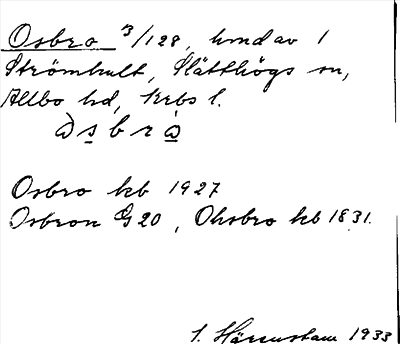 Osbro 3/128, hmd av 1
Strömhult, Slätthögs sn,
Allbo hd, Krbs l.
òs̲brà̲
Osbro kb 1927
Osbron G20, Ohsbro kb 1831.
I. Härenstam 1933